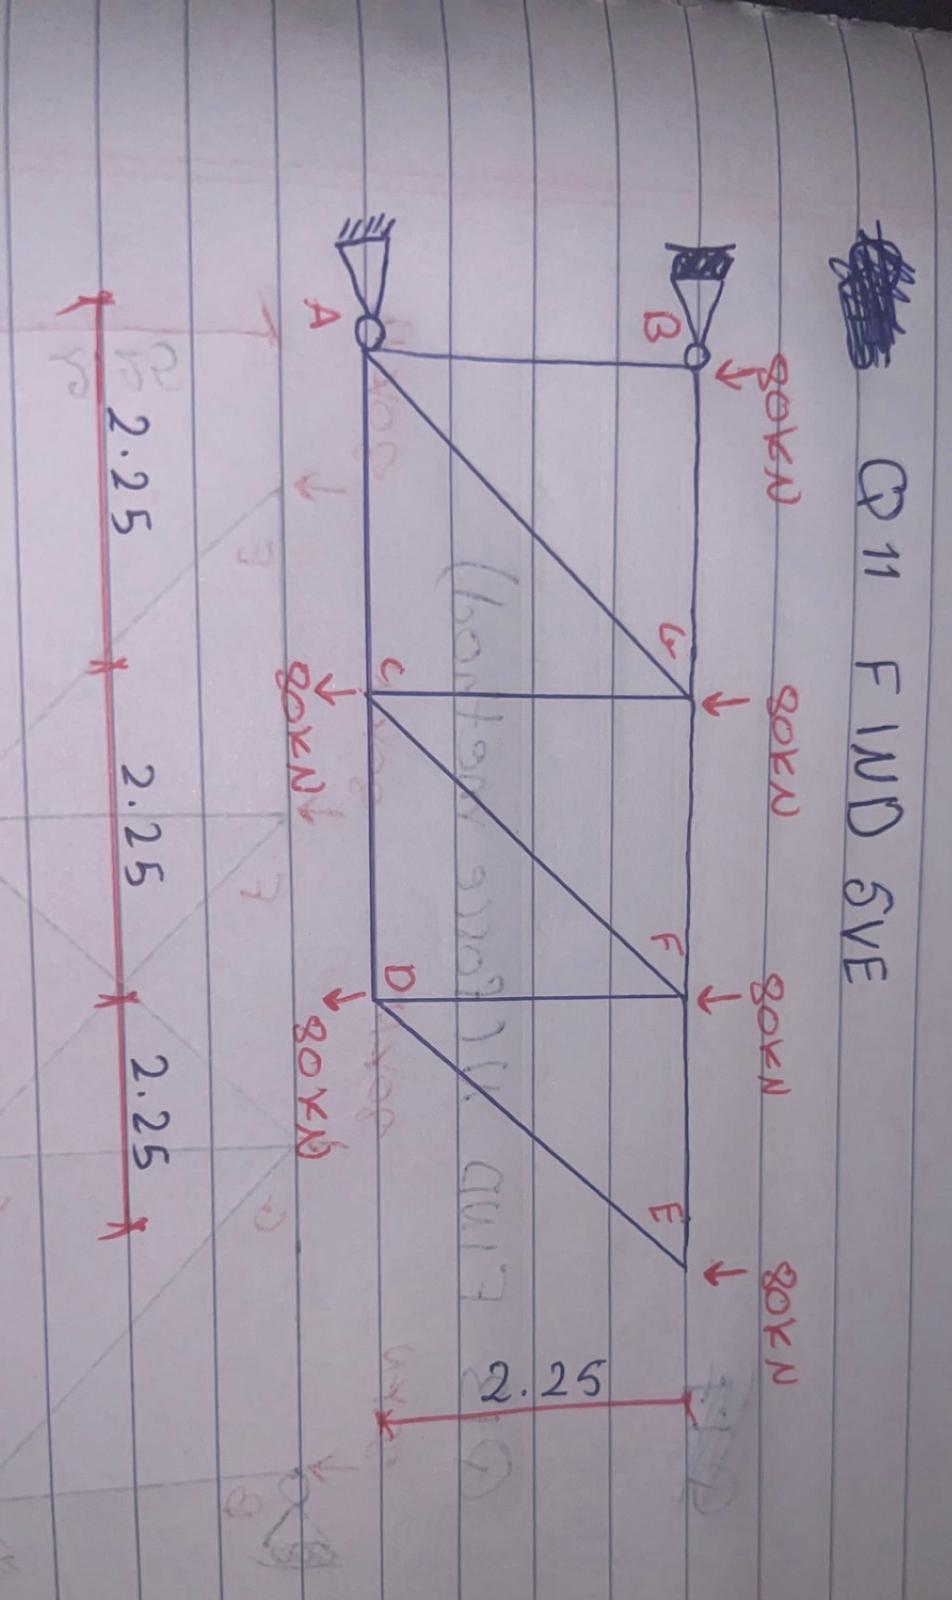 Q11 FIND SVE
80KN 80KN 80KN 80KN
B G F E
2.25
A C D
80KN 80KN
2.25 2.25 2.25